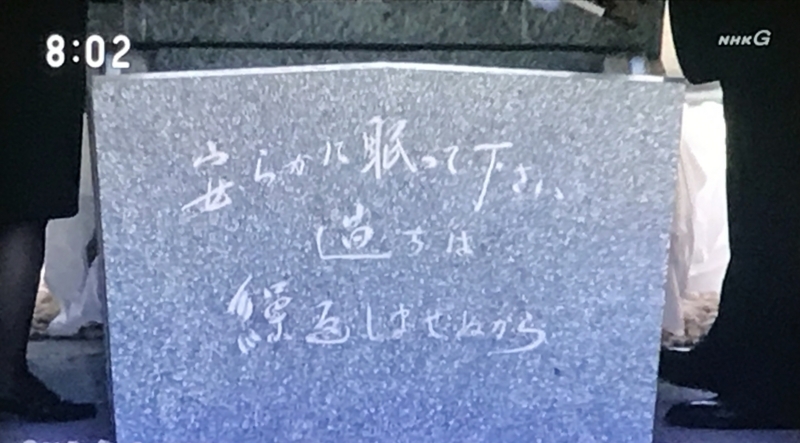 8:02
NHK G
安らかに眠って下さい
過ちは
繰返しませぬから